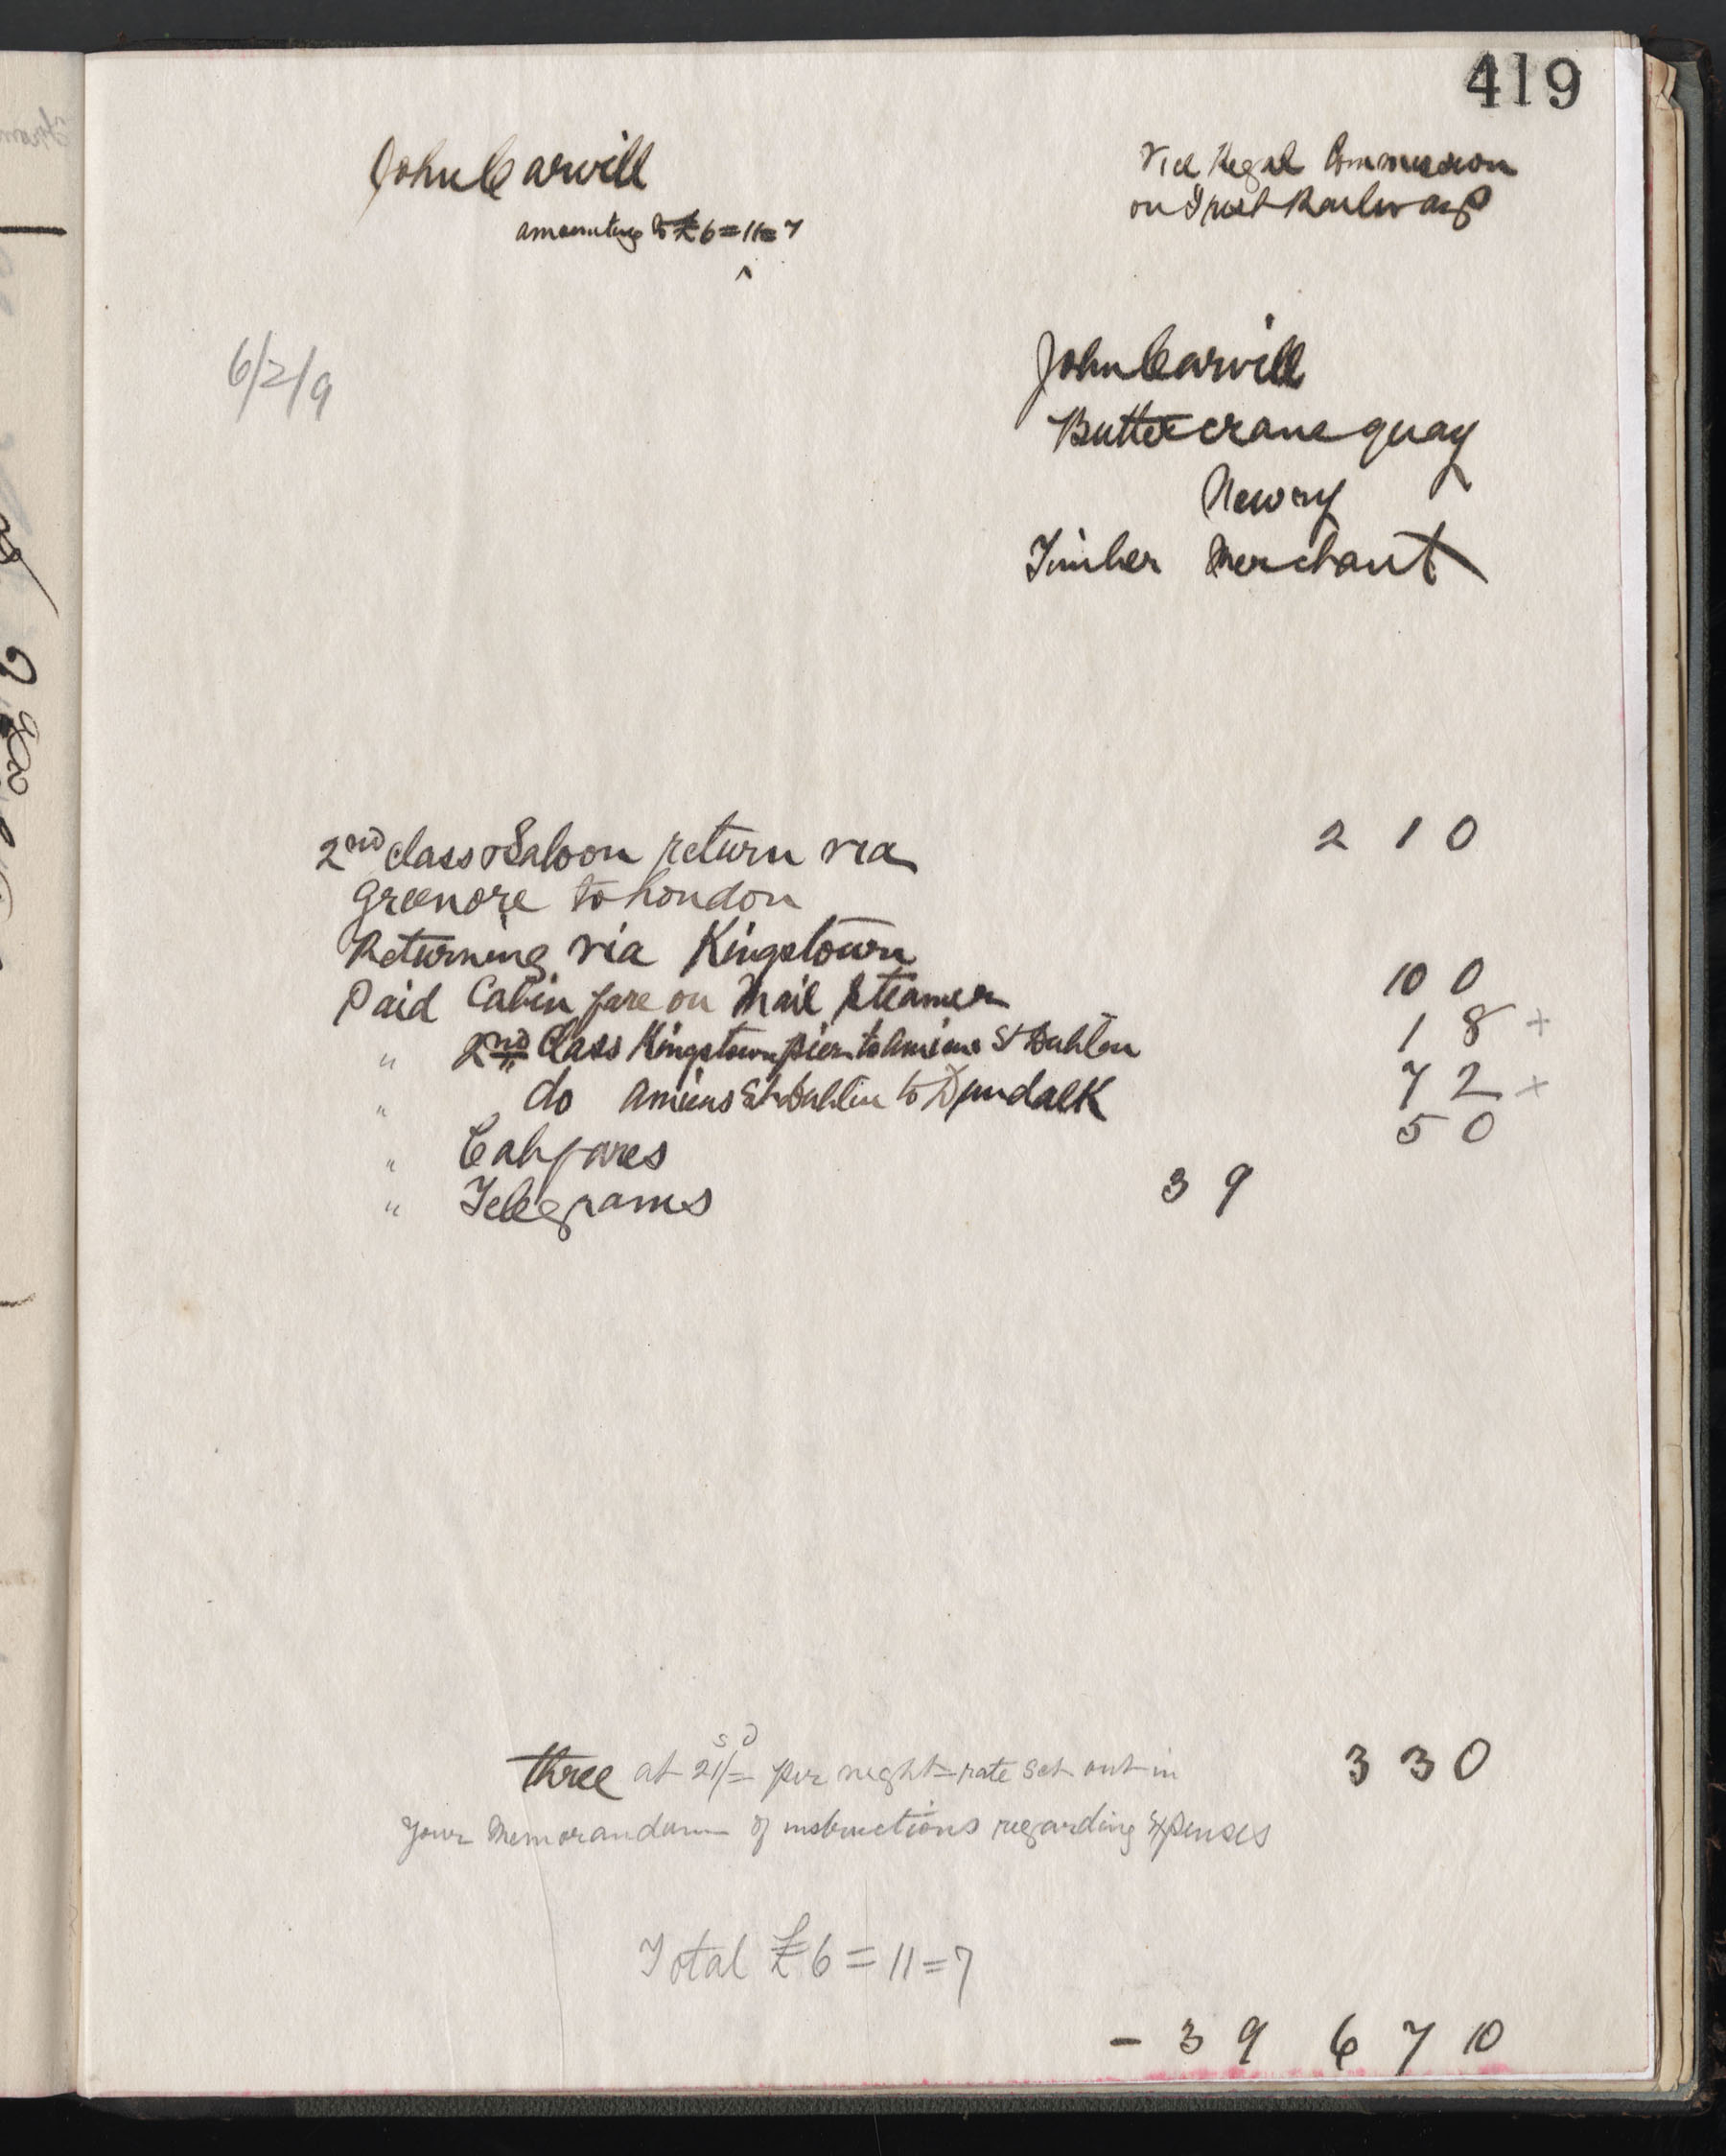 419
John Carvill
Vice Regal Commission
on Irish Railways
amounting to £6=11=7
^
6/2/9
John Carvill
Buttercrane quay
Newry
Timber Merchant
2nd class & Saloon return via 2 1 0
Greenore to London
Returning via Kingstown
Paid Cabin fare on Mail Steamer 10 0
" 2nd Class Kingstown pier to Amiens St Dublin 1 8 +
" do Amiens St Dublin to Dundalk 7 2 +
" Cab fares 5 0
" Telegrams 3 9
s d
three at 21/= per night = rate set out in 3 3 0
your Memorandum of instructions regarding Expenses
Total £6=11=7
- 3 9 6 7 10